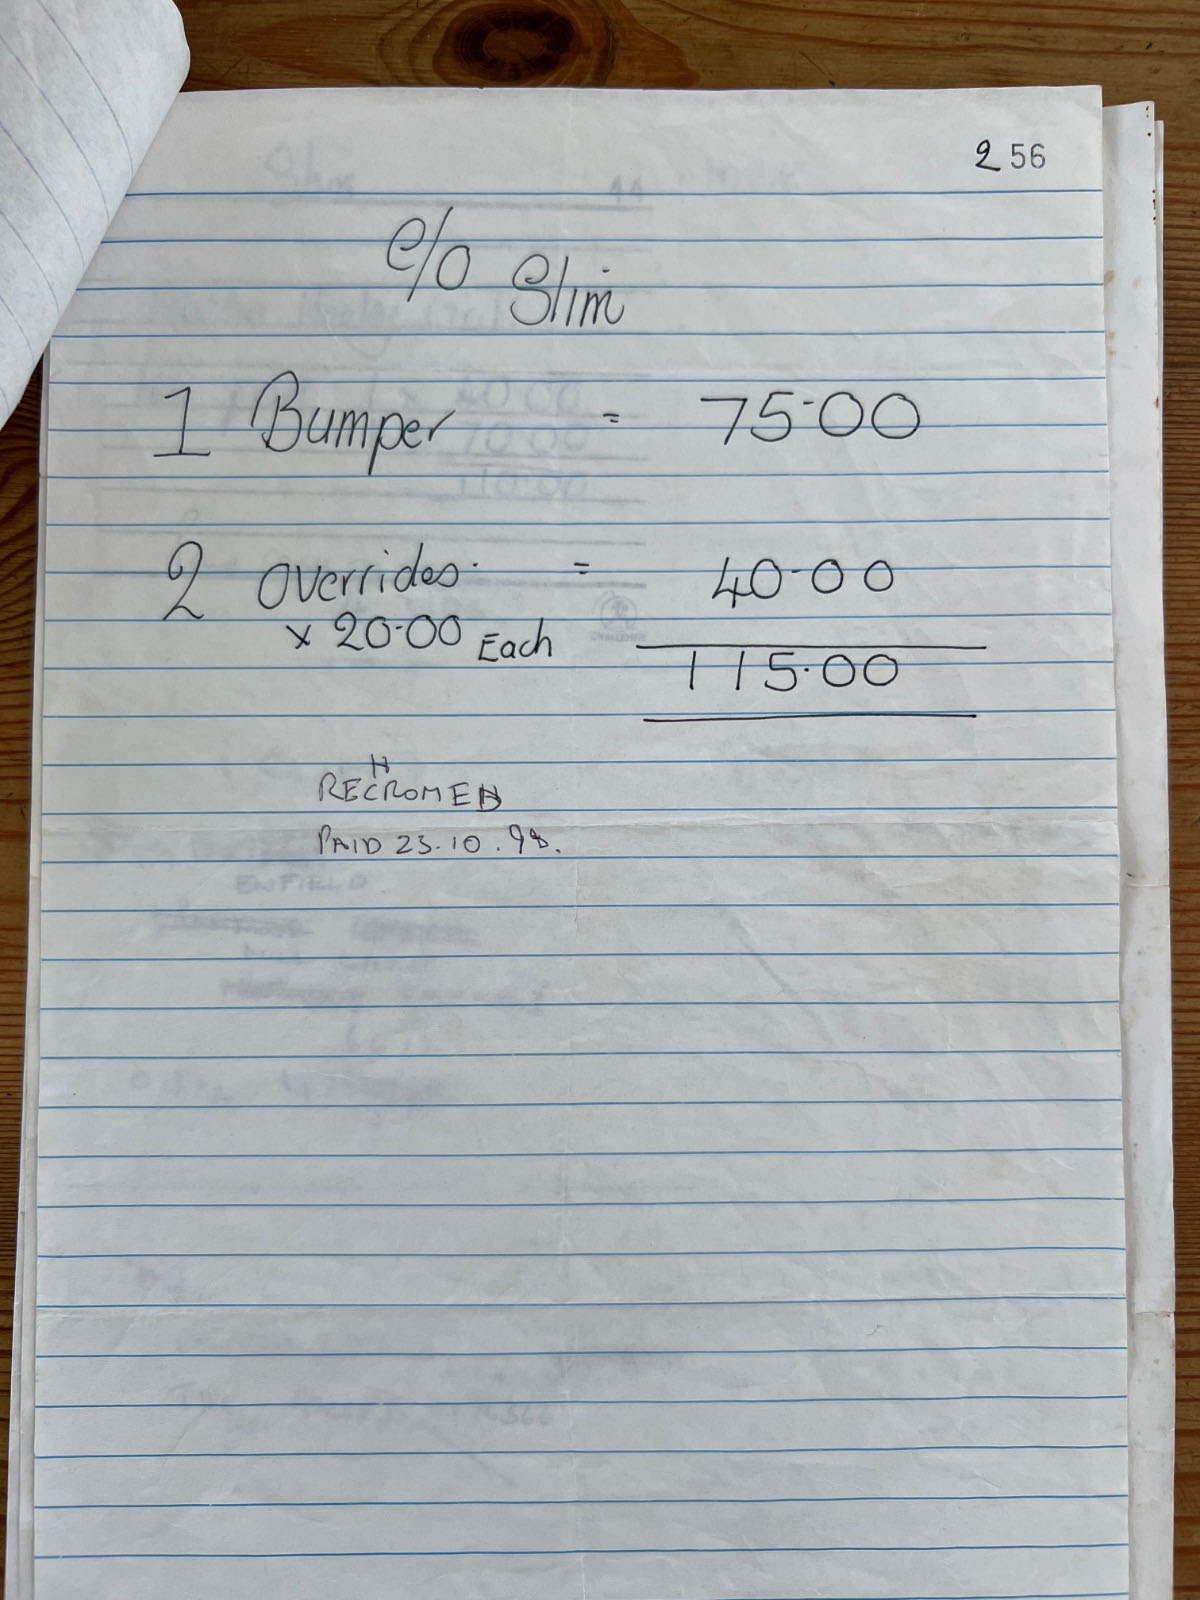 256
C/O Slim
1 Bumper = 75.00
2 Overrides. = 40.00
x 20.00 Each
115.00
RECHROMED
PAID 23.10.98.
ENFIELD